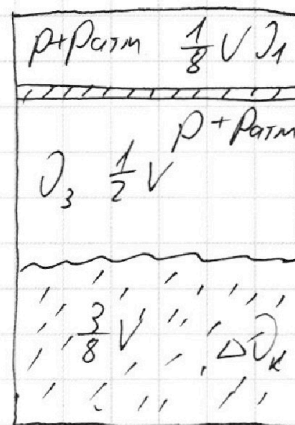 p+Pатм 1/8 V ν1
p+Pатм
ν3 1/2 V
3/8 V Δνк